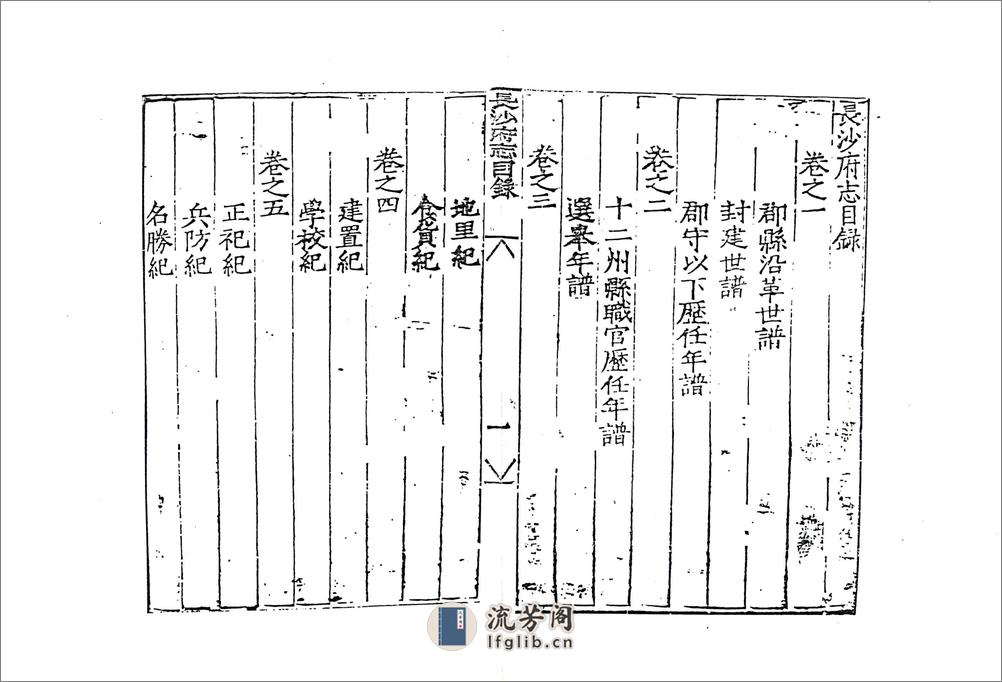 長沙府志目録
卷之一
郡縣沿革世譜
封建世譜
卷之二
郡守以下歷任年譜
十二州縣職官歷任年譜
卷之三
選舉年譜
長沙府志目錄
一
地里紀
食貨紀
卷之四
建置紀
學校紀
卷之五
正祀紀
兵防紀
名勝紀
流芳阁
lfglib.cn